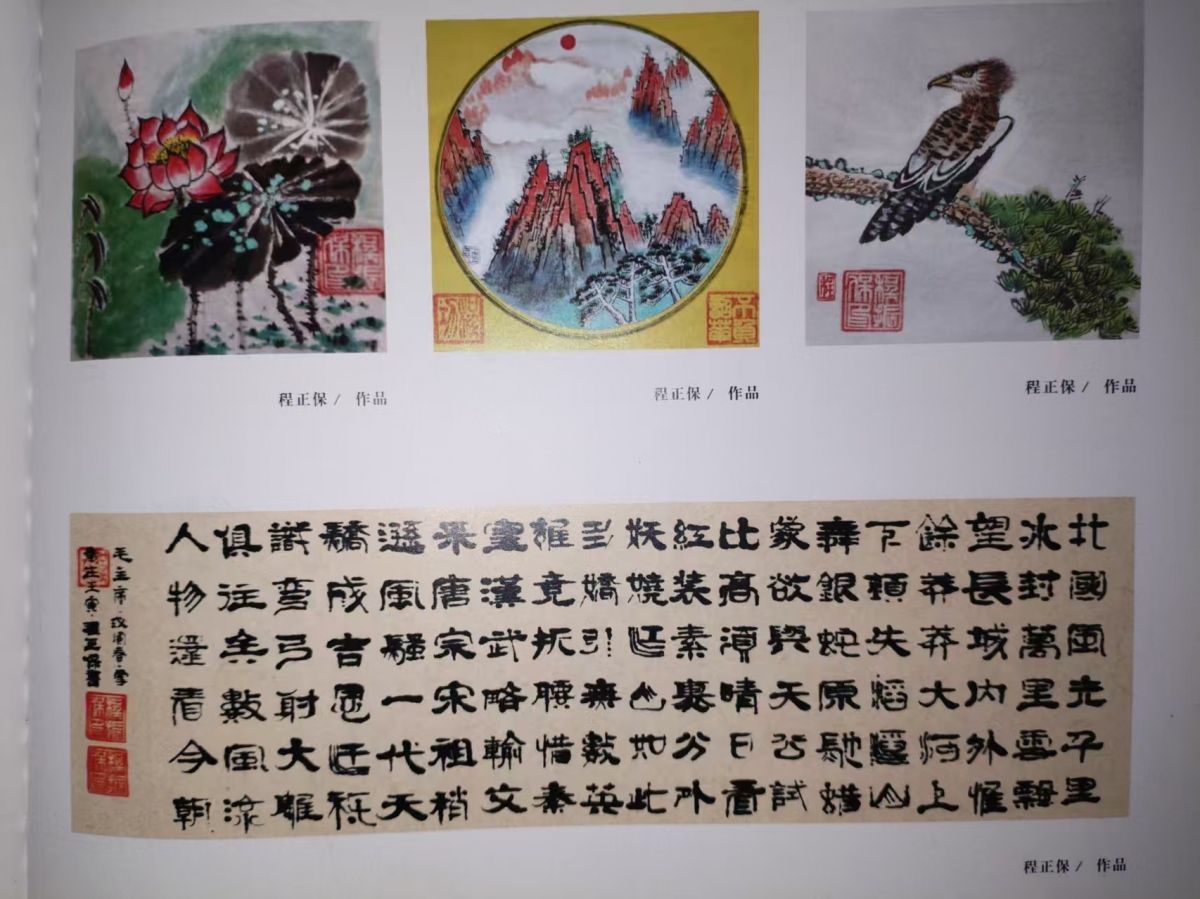 程正保 / 作品
程正保 / 作品
程正保 / 作品
北國風光千里
冰封萬里雪飄
望長城内外惟
餘莽莽大河上
下頓失滔滔山
舞銀蛇原馳蠟
象欲與天公試
比高須晴日看
紅裝素裹分外
妖嬈江山如此
多嬌引無數英
雄竞折腰惜秦
皇漢武略輸文
采唐宗宋祖稍
遜風騷一代天
驕成吉思汗秖
識彎弓射大雕
俱往矣數風流
人物還看今朝
毛主席·沁園春·雪
在壬寅·程正保書
程正保 / 作品